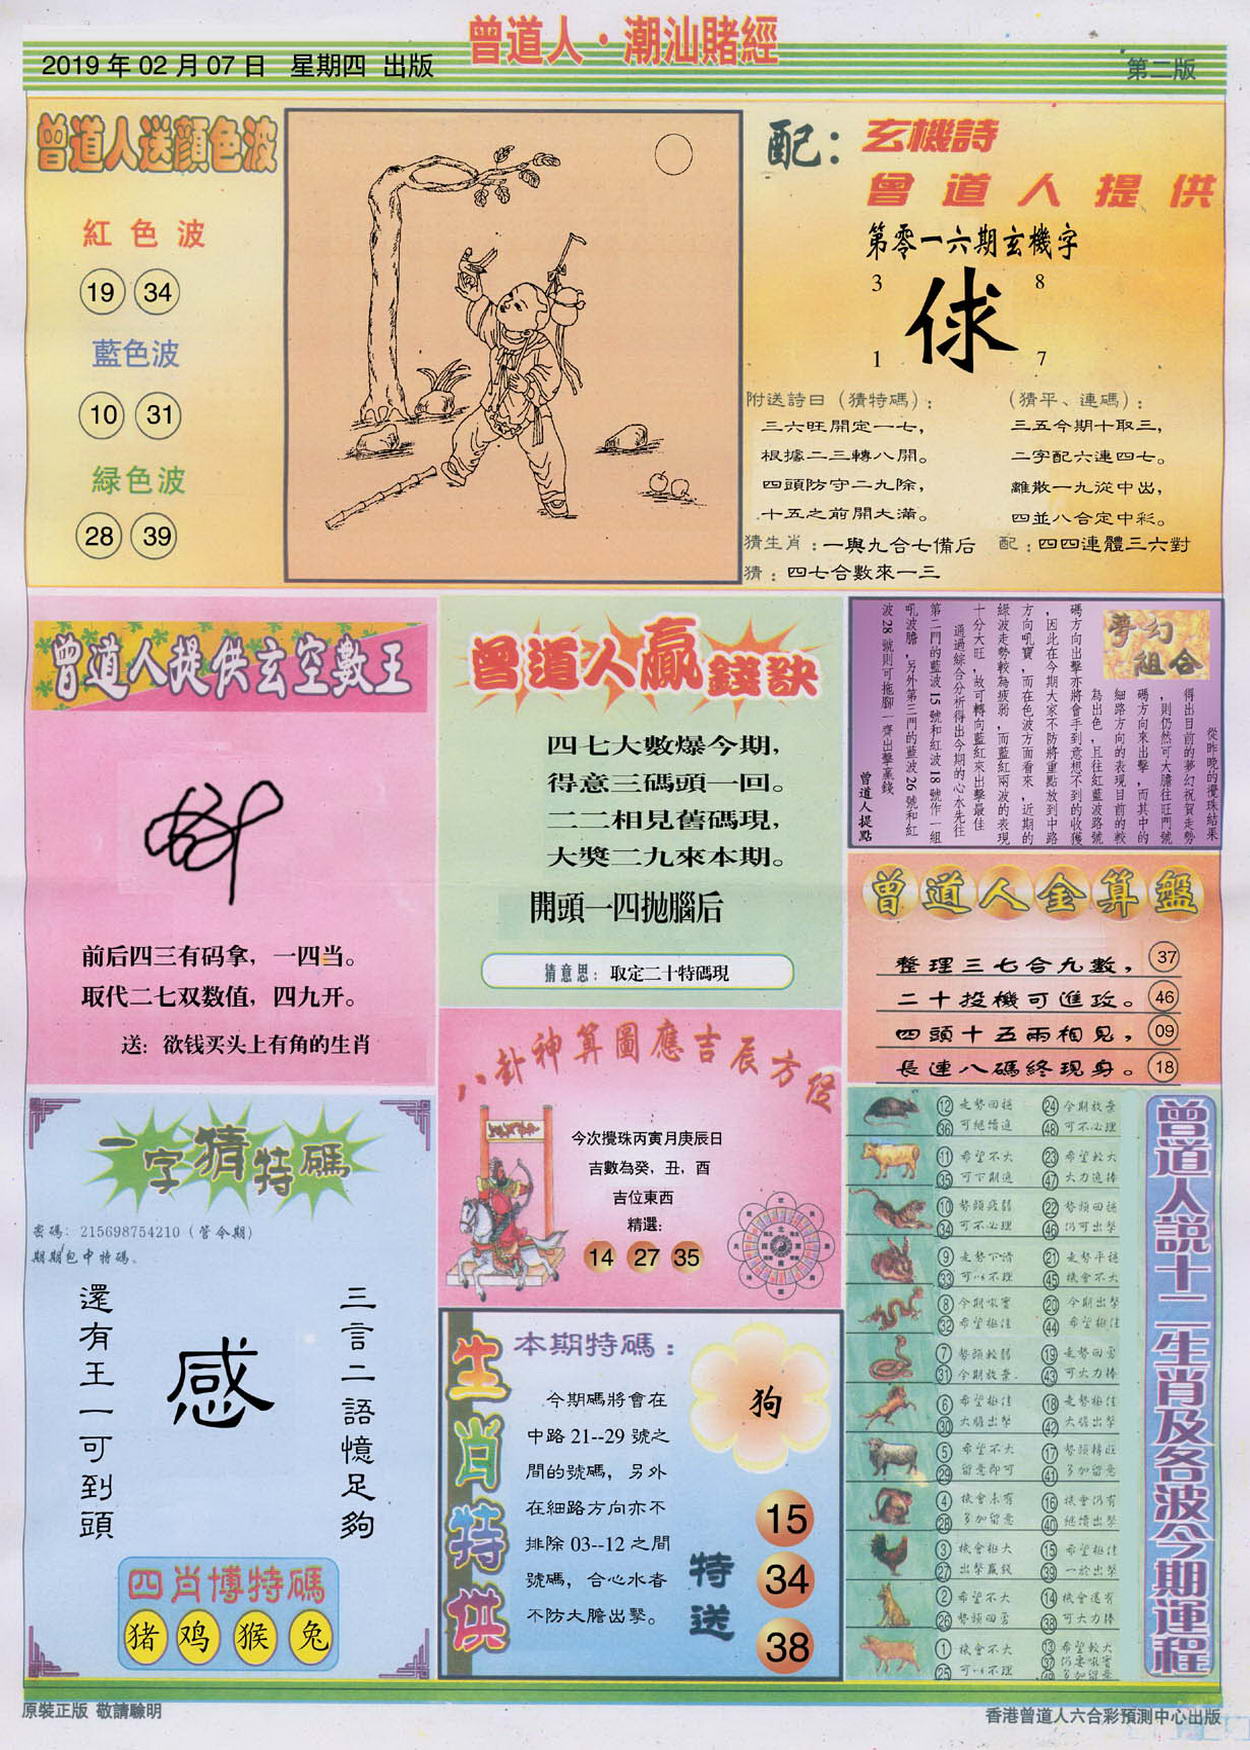 曾道人·潮汕賭經
2019年02月07日 星期四 出版
第二版
曾道人送顔色波
紅色波
19 34
藍色波
10 31
緑色波
28 39
配：玄機詩
曾道人提供
第零一六期玄機字
3 8
俅
1 7
附送詩曰（猜特碼）：
三六旺開定一七，
根據二三轉八開。
四頭防守二九除，
十五之前開大滿。
（猜平、連碼）：
三五今期十取三，
二字配六連四七。
離散一九從中出，
四並八合定中彩。
猜生肖：一與九合七備后
配：四四連體三六對
猜：四七合數來一三
曾道人提供玄空數王
前后四三有码拿，一四当。
取代二七双数值，四九开。
送：欲钱买头上有角的生肖
曾道人贏錢訣
四七大數爆今期，
得意三碼頭一回。
二二相見舊碼現，
大獎二九來本期。
開頭一四抛腦后
猜意思：取定二十特碼現
夢幻
組合
從昨晚的攪珠結果
得出目前的夢幻祝賀走勢
，則仍然可大膽往旺門號
碼方向來出擊，而其中的
細路方向的表現目前的較
為出色，且往紅藍波路號
碼方向出擊亦將會手到意想不到的收獲
，因此在今期大家不防將重點放到中路
方向吼寶，而在色波方面看來，近期的
綠波走勢較為疲弱，而藍紅兩波的表現
十分大旺，故可轉向藍紅來出擊最佳
通過綜合分析得出今期的心水先往
第二門的藍波15號和紅波18號作一組
吼波膽，另外第三門的藍波26號和紅
波28號則可拖腳一齊出擊贏錢
曾道人提點
曾道人金算盤
整理三七合九數， 37
二十投機可進攻。 46
四頭十五兩相見， 09
長連八碼終現身。 18
八卦神算圖應吉辰方位
今次攪珠丙寅月庚辰日
吉數為癸，丑，酉
吉位東西
精選：
14 27 35
一字猜特碼
密碼：215698754210（管令期）
期期包中特碼。
三言二語憶足夠
感
還有王一可到頭
四肖博特碼
猪 鸡 猴 兔
生肖特供
本期特碼：
今期碼將會在
中路21--29號之
間的號碼，另外
在細路方向亦不
排除03--12之間
號碼，合心水者
不防大膽出擊。
狗
特送
15
34
38
曾道人説十二生肖及各波今期運程
12 走勢回穩 24 今期放棄
36 可繼續追 48 可不必理
11 希望不大 23 希望較大
35 可下期追 47 大力追捧
10 勢頭疲弱 22 勢頭回穩
34 可不必理 46 仍可出擊
9 走勢下滑 21 走勢平穩
33 可以不理 45 機會不大
8 今期吼寶 20 今期出擊
32 希望極佳 44 希望極佳
7 勢頭較弱 19 走勢回勇
31 今期放棄 43 可大力捧
6 希望極佳 18 走勢極佳
30 大膽出擊 42 大膽出擊
5 希望不大 17 勢頭轉旺
29 留意即可 41 多加留意
4 機會未有 16 機會仍有
28 多加留意 40 繼續出擊
3 機會極大 15 希望極佳
27 出擊贏錢 39 一於出擊
2 希望不大 14 機會還有
26 勢頭回勇 38 可大力捧
1 機會不大 13 希望較大
25 可以不理 37 仍要吼實
49 多加留意
原裝正版 敬請驗明
香港曾道人六合彩預測中心出版